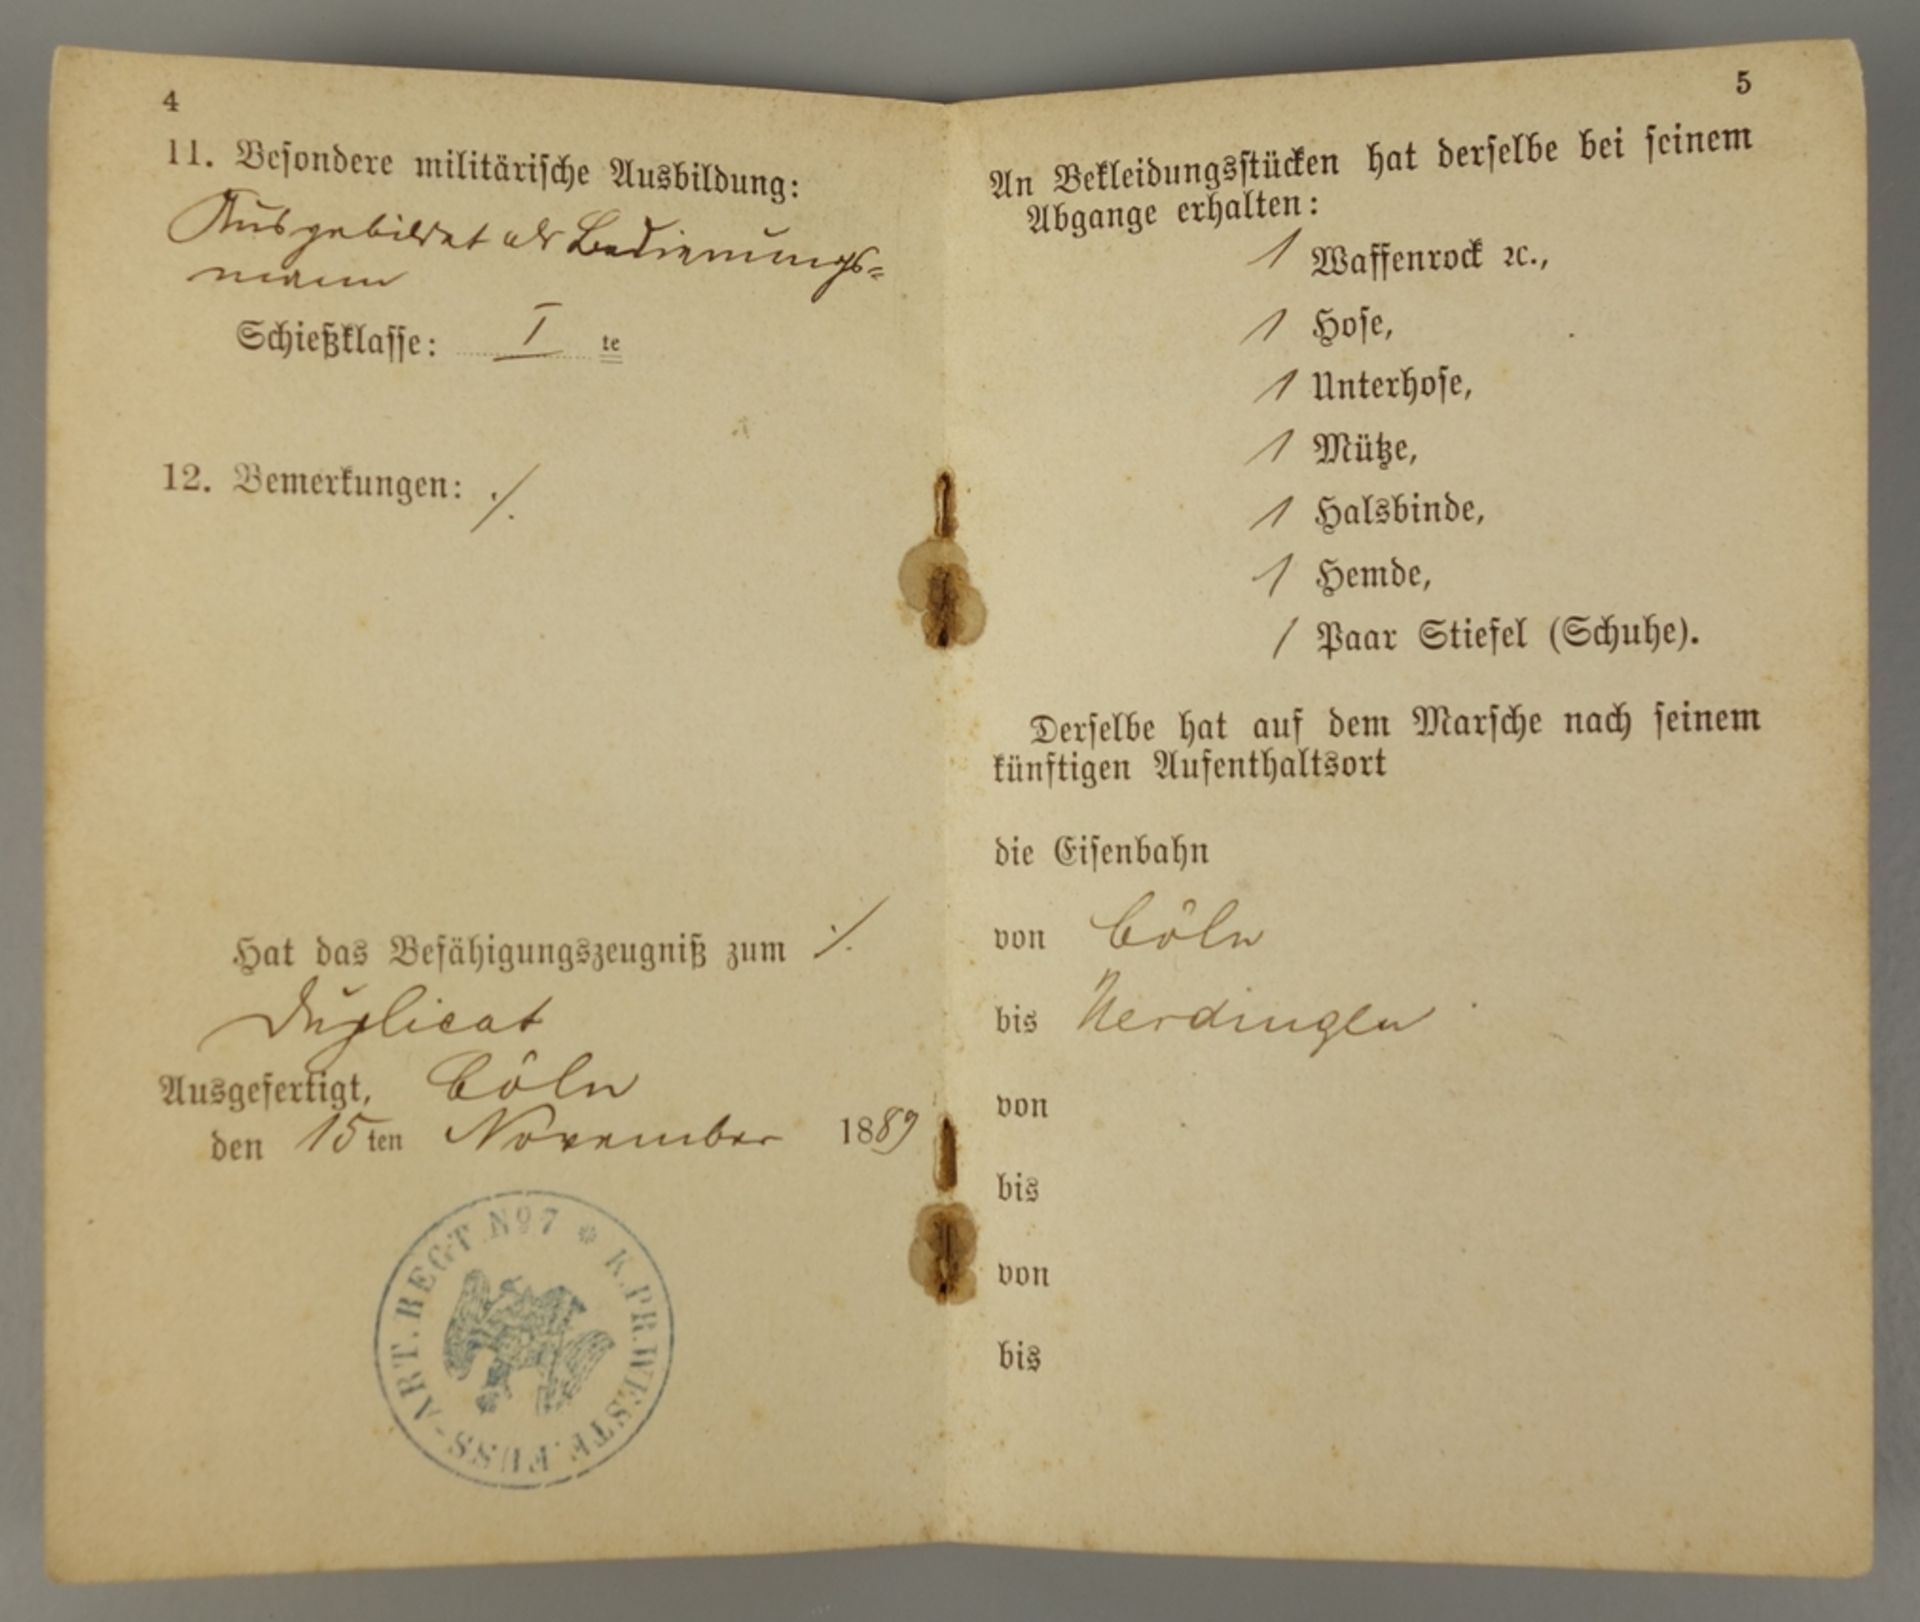 4
11. Besondere militärische Ausbildung:
Ausgebildet als Bedienungs=
mann
Schießklasse: I te
12. Bemerkungen: ./.
Hat das Befähigungszeugniß zum ./.
Duplicat
Ausgefertigt, Cöln
den 15ten November 1889
K. PR. WESTF. FUSS-ART. REGT. No 7 *
5
An Bekleidungsstücken hat derselbe bei seinem
Abgange erhalten:
1 Waffenrock ꝛc.,
1 Hose,
1 Unterhose,
1 Mütze,
1 Halsbinde,
1 Hemde,
1 Paar Stiefel (Schuhe).
Derselbe hat auf dem Marsche nach seinem
künftigen Aufenthaltsort
die Eisenbahn
von Cöln
bis Uerdingen
von
bis
von
bis